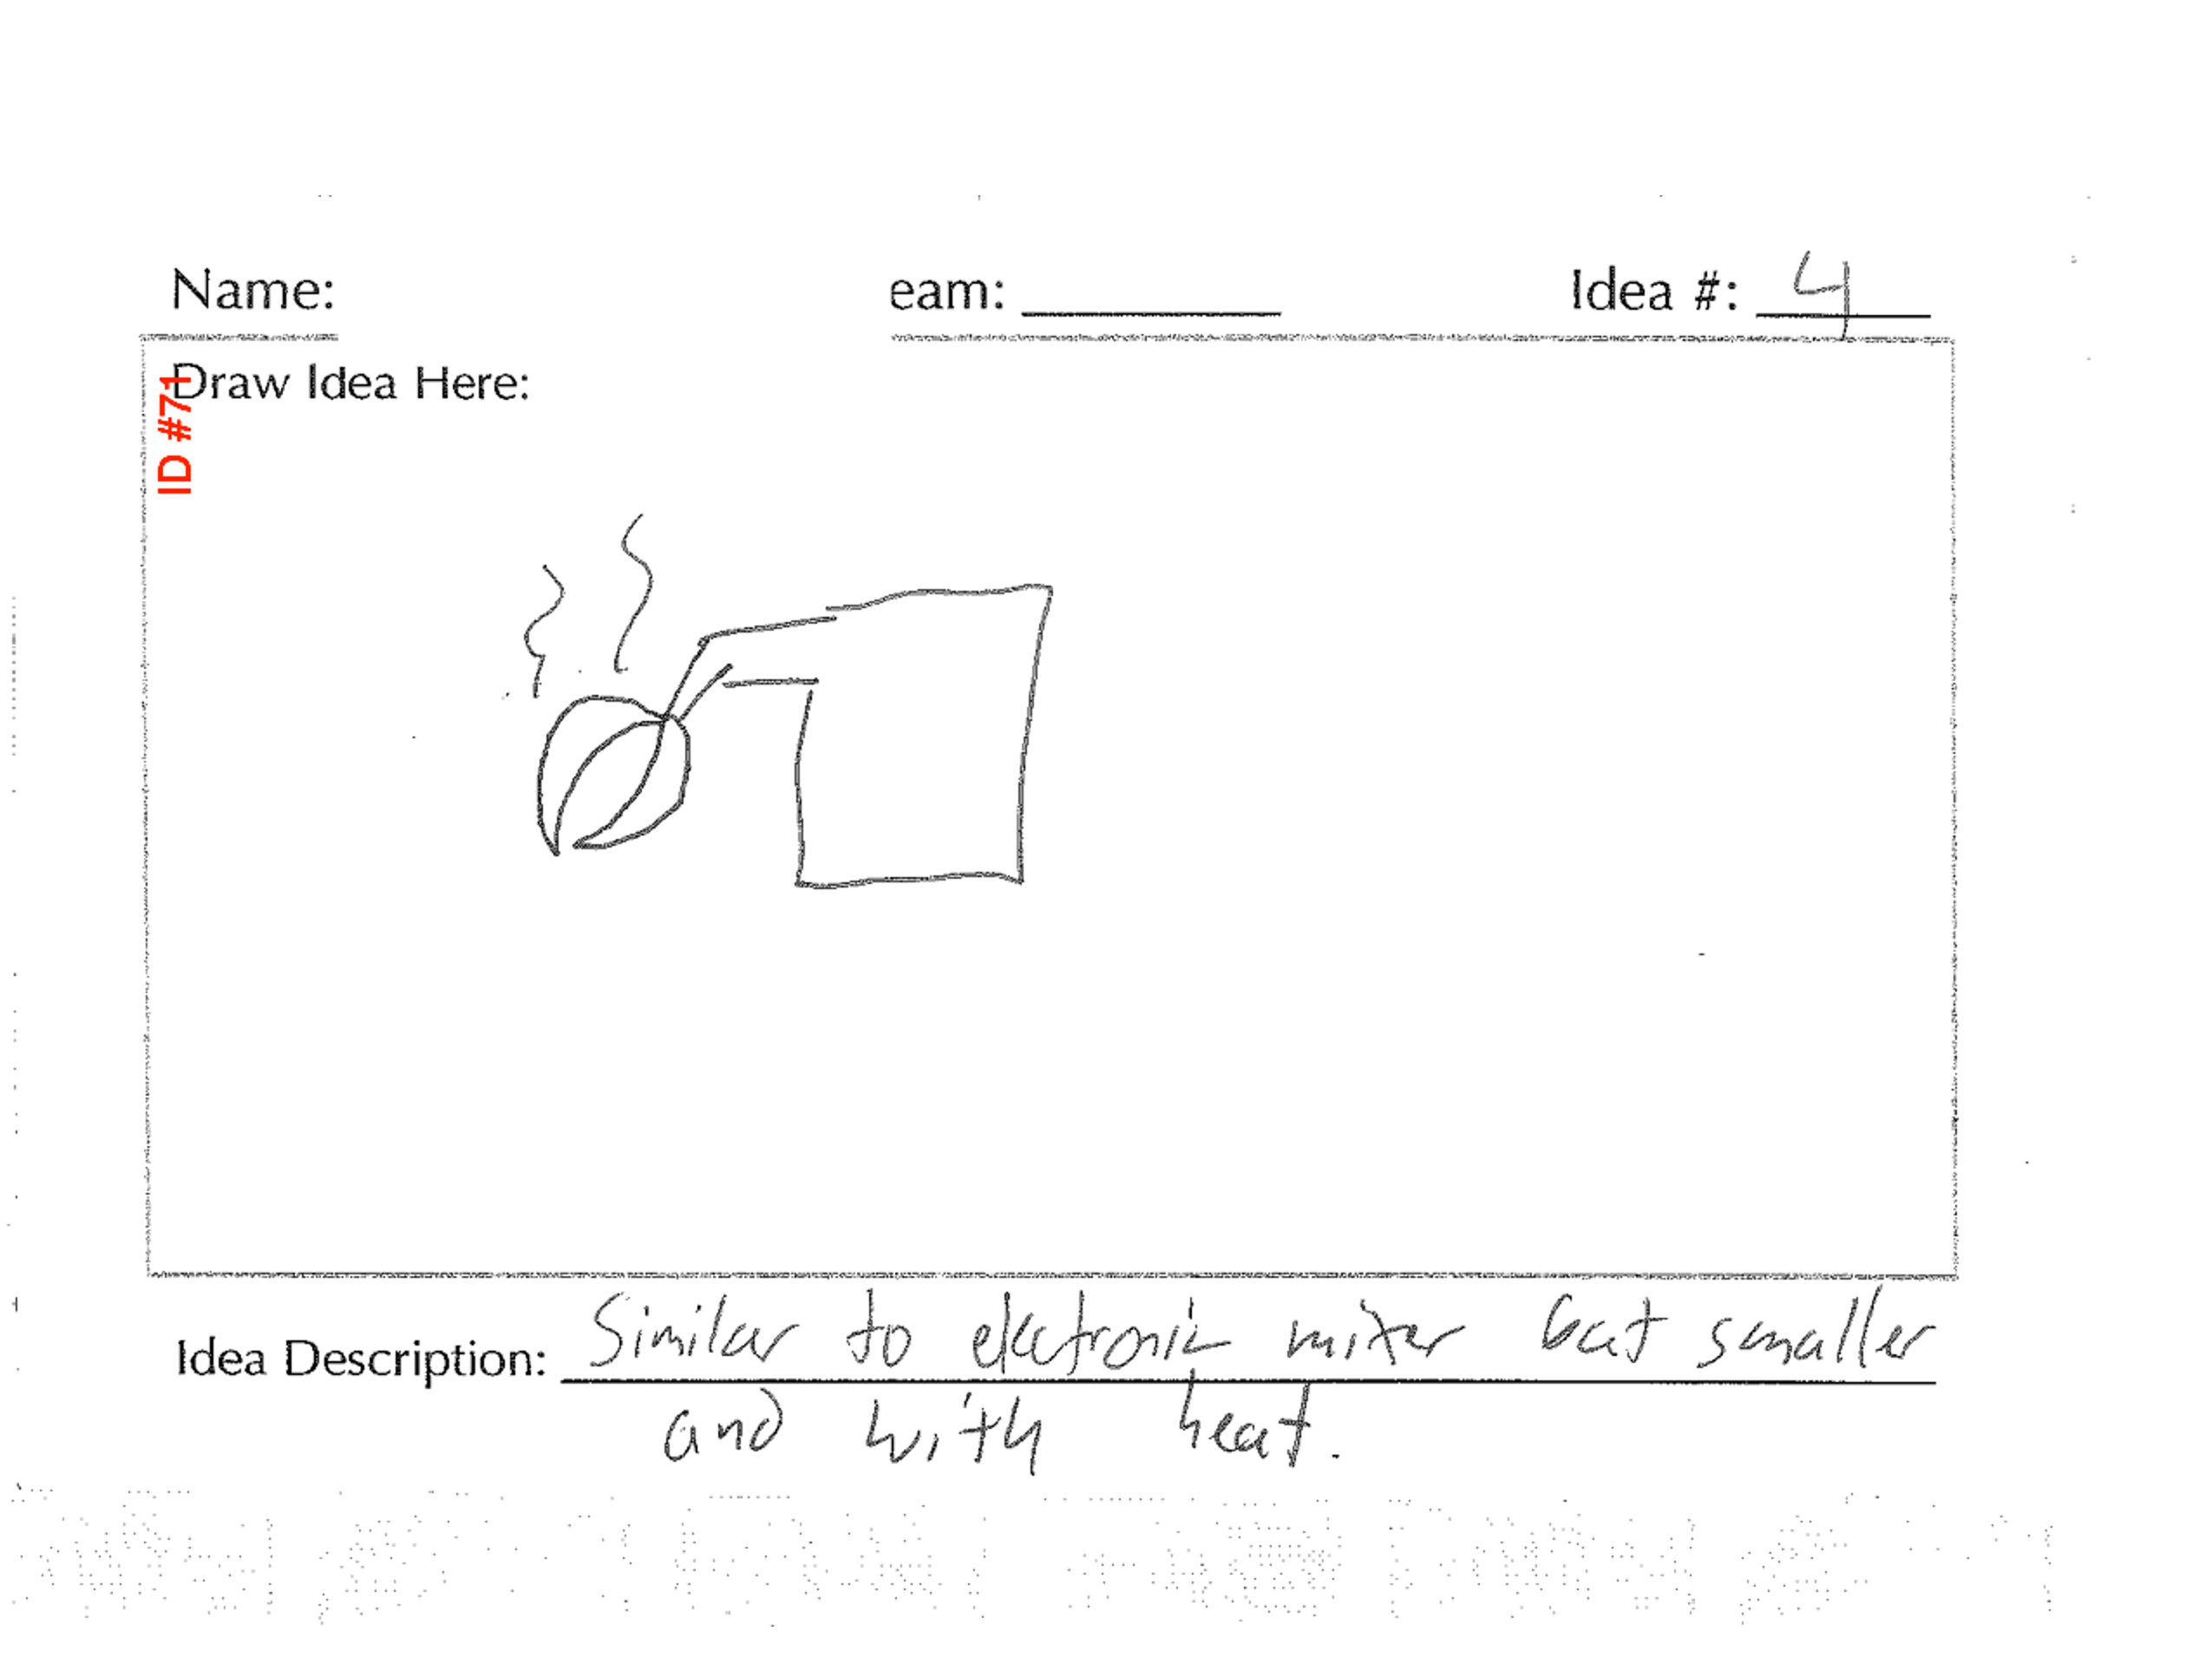 Name: eam: Idea #: 4
Draw Idea Here:
ID #71
Idea Description: Similar to electronic mixer but smaller
and with heat.